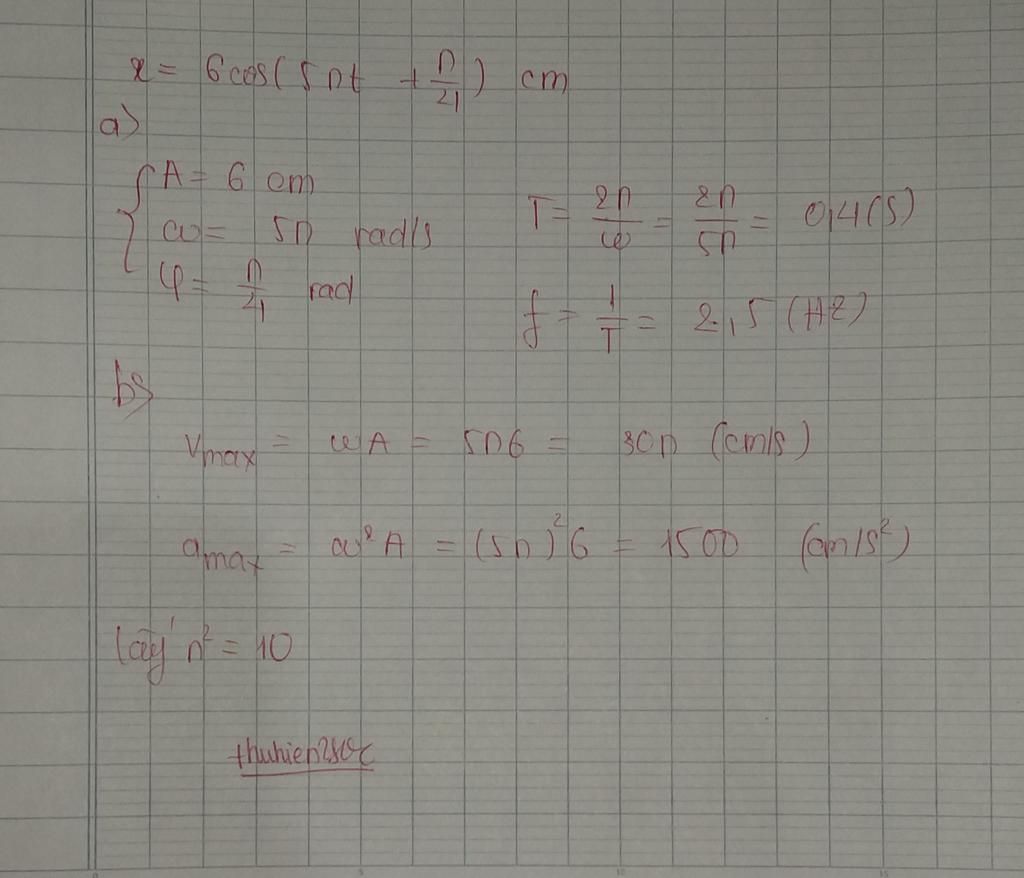 x = 6cos(5πt + π/4) cm
a)
A = 6 cm
ω = 5π rad/s
φ = π/4 rad
T = 2π/ω = 2π/5π = 0,4(s)
f = 1/T = 2,5 (Hz)
b)
vmax = ωA = 5π6 = 30π (cm/s)
amax = ω²A = (5π)²6 = 1500 (cm/s²)
lấy π² = 10